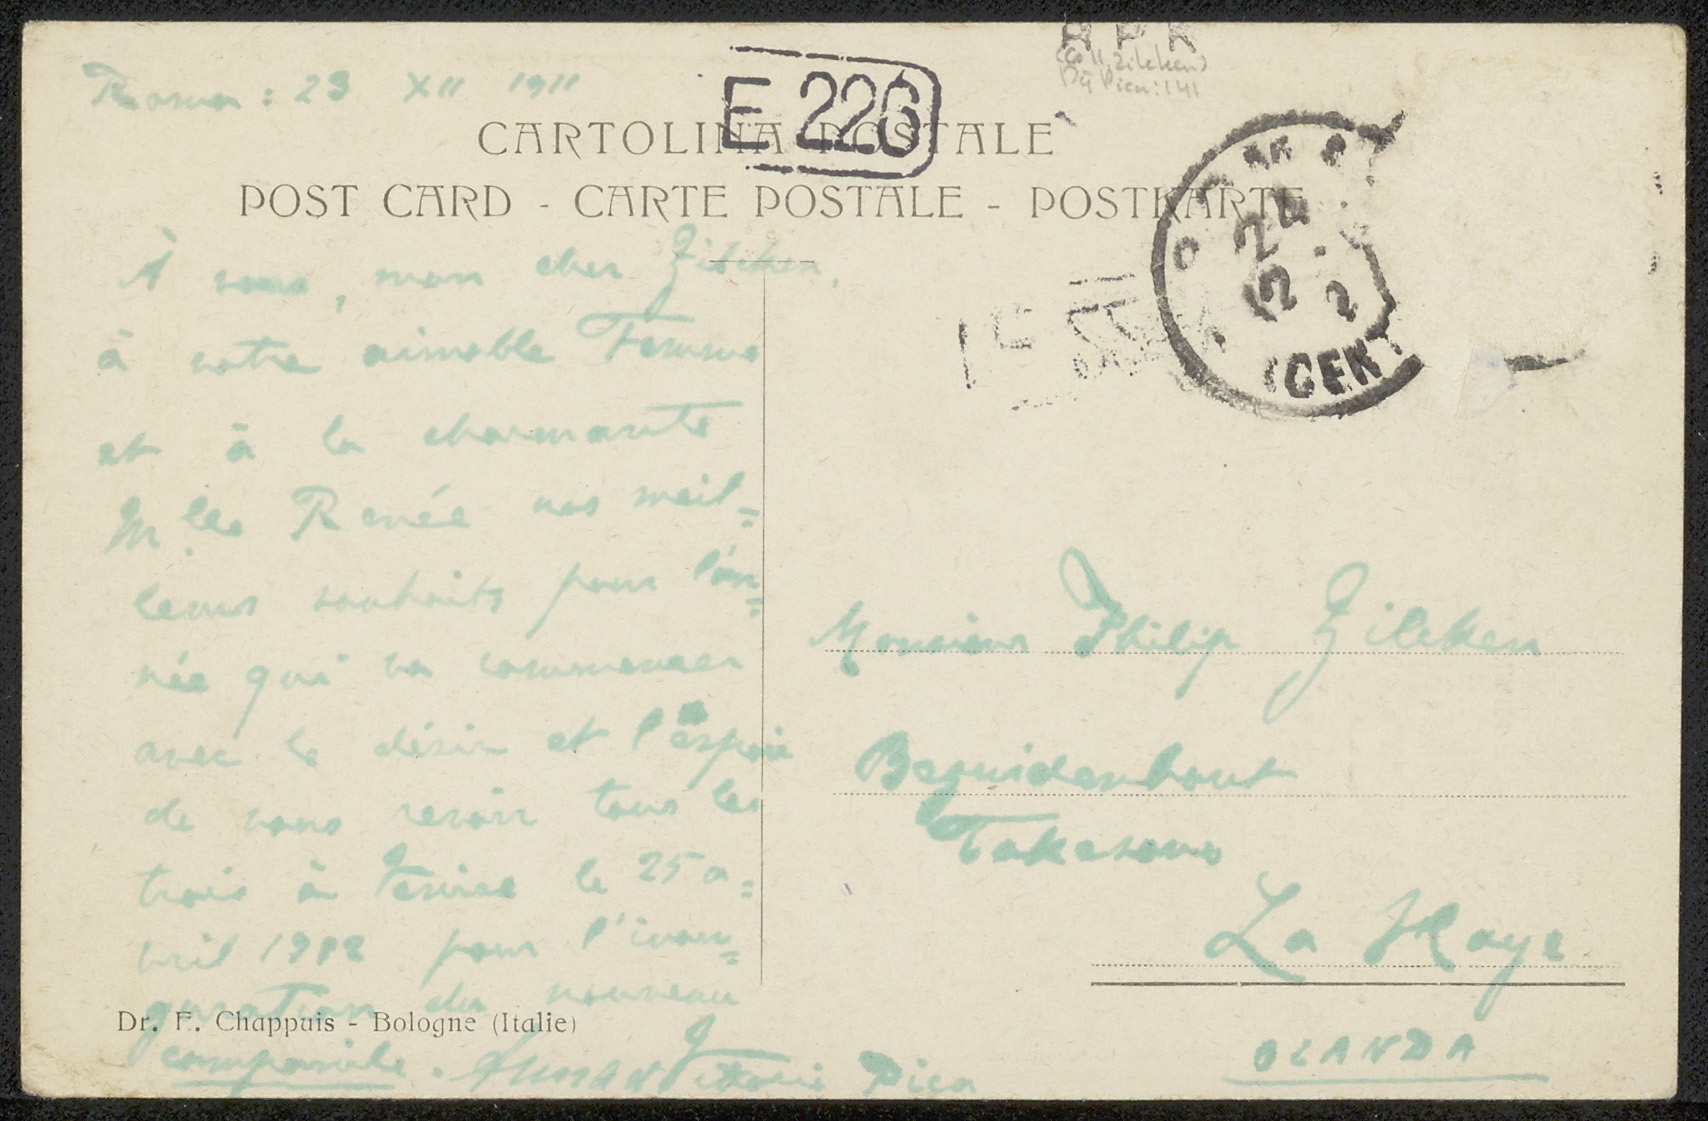 Roma: 23 XII 1911
E 226
CARTOLINA POSTALE
POST CARD - CARTE POSTALE - POSTKARTE
24
12
CENT
À vous, mon cher Zilcken,
à votre aimable Femme
et à la charmante
Mlle Renée nos meil=
leurs souhaits pour l'an=
née qui va commencer
avec le désir et l'espoir
de vous revoir tous les
trois à Venise le 25 a=
vril 1912 pour l'inau=
guration du nouveau
campanile. Vittorio Pica
Monsieur Philip Zilcken
Bezuidenhout
La Haye
OLANDA
Dr. F. Chappuis - Bologne (Italie)